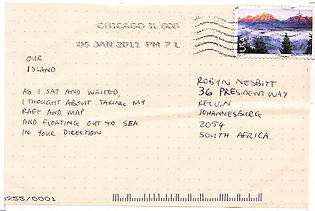 CHICAGO IL 606
05 JAN 2011 PM 7 L
USA
OUR
ISLAND
AS I SAT AND WAITED,
I THOUGHT ABOUT TAKING MY
RAFT AND MAP
AND FLOATING OUT TO SEA
IN YOUR DIRECTION
ROBYN NESBITT
36 PRESIDENT WAY
KELVIN
JOHANNESBURG
2054
SOUTH AFRICA.
0255/0001